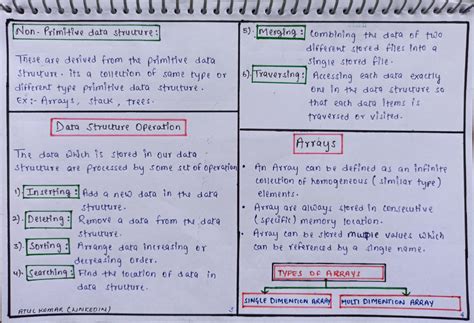 Non-Primitive data structure:
These are derived from the primitive data
structure. its a collection of same type or
different type primitive data structure.
Ex:- Arrays, stack, trees.
Data Structure Operation
The data which is stored in our data
structure are processed by some set of operation
1). Inserting: Add a new data in the data
structure.
2). Deleting: Remove a data from the data
structure.
3). Sorting: Arrange data increasing or
decreasing order.
4). Searching: Find the location of data in
data structure.
ATUL KUMAR (LINKEDIN)
5). Merging: Combining the data of two
different stored files into a
single stored file.
6). Traversing: Accessing each data exactly
one in the data structure so
that each data items is
traversed or visited.
Arrays
• An Array can be defined as an infinite
collection of homogeneous (similar type)
elements.
• Array are always stored in consecutive
(specific) memory location.
• Array can be stored multiple values which
can be referenced by a single name.
TYPES OF ARRAYS
SINGLE DIMENTION ARRAY
MULTI DIMENTION ARRAY